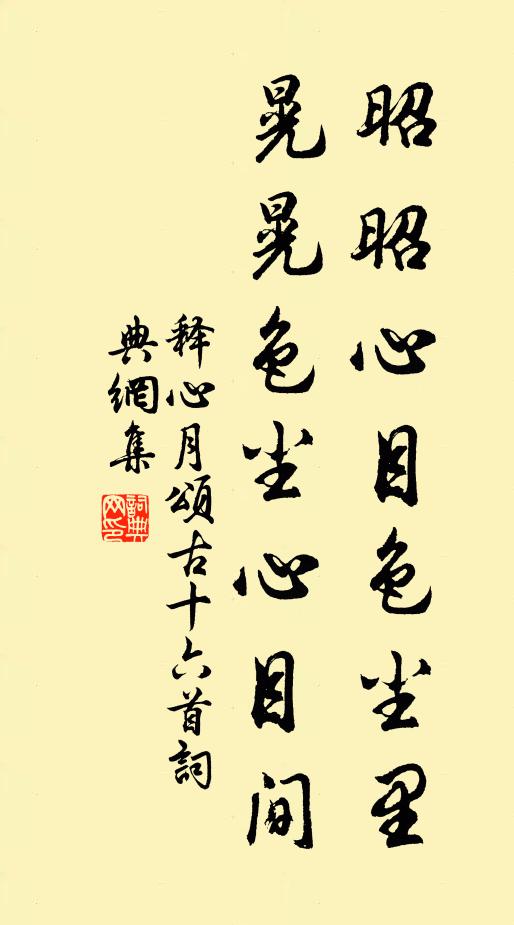 昭昭心目色尘里
晃晃色尘心目间
释心月颂古十六首詞
典網集
詞典
网印